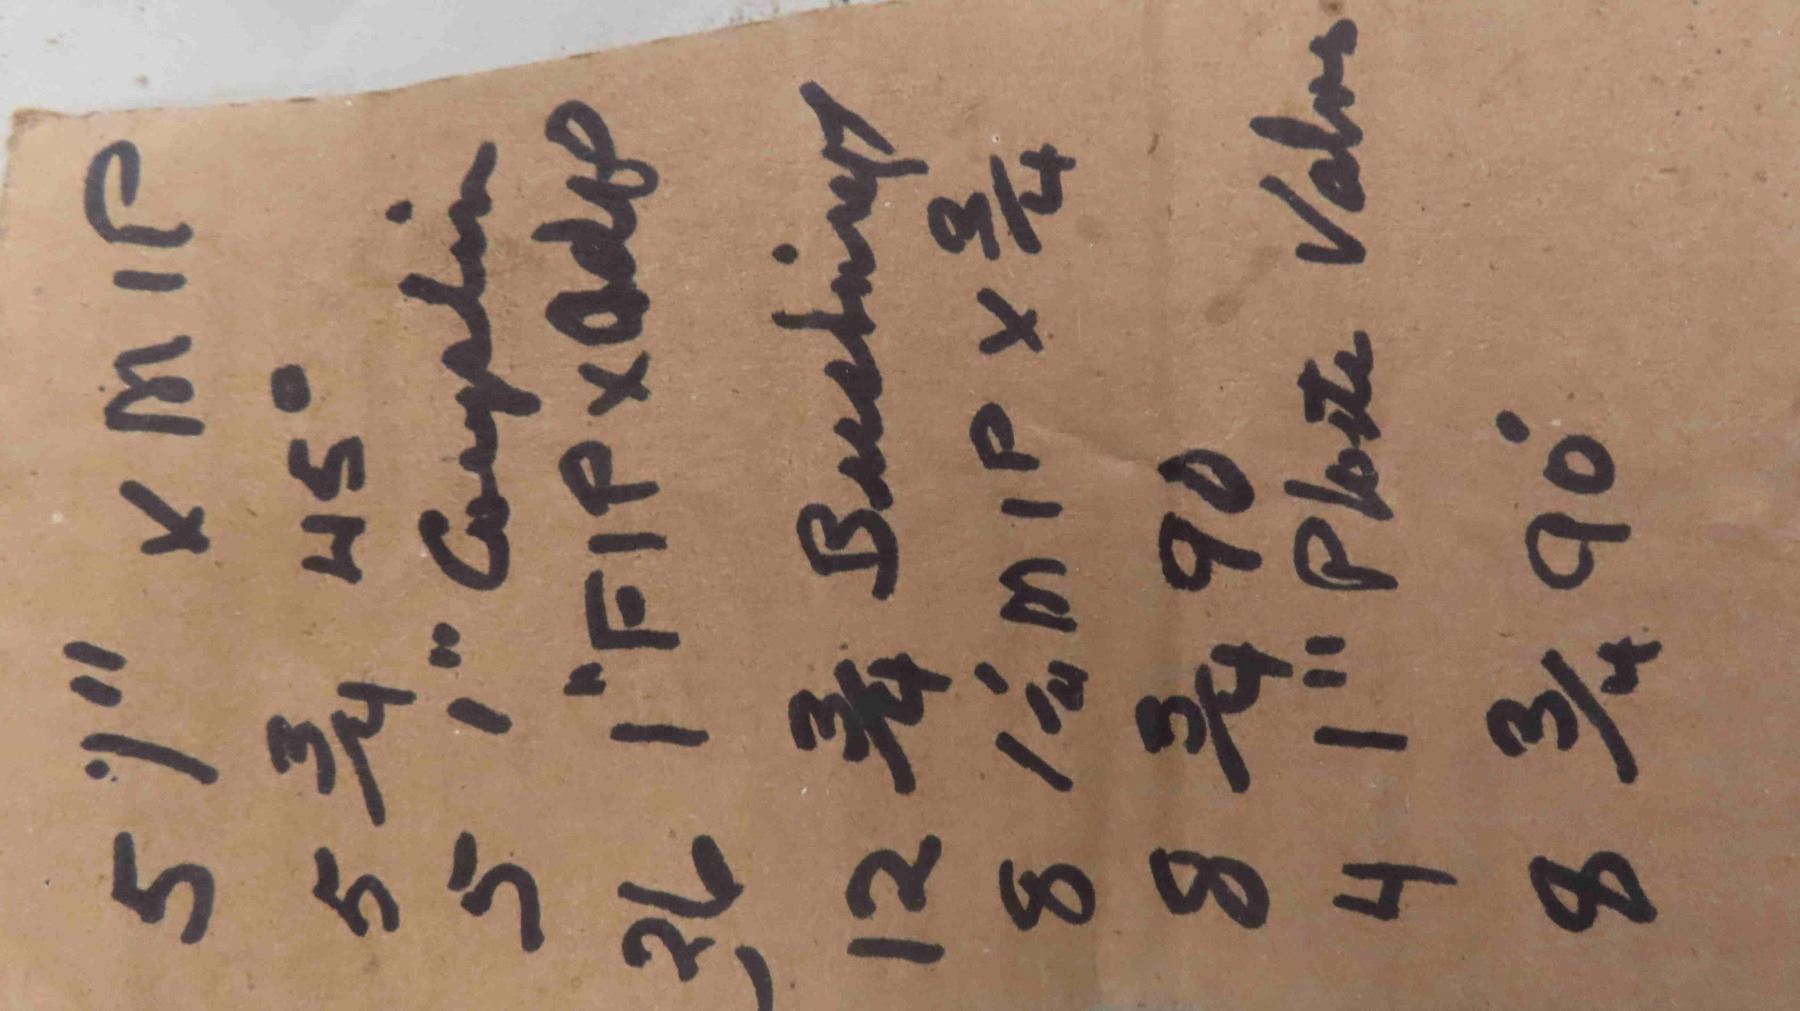 5 1" x MIP
5 3/4 45°
5 1" Couplin
26 1" FIP x Adap
12 3/4 Bushing
8 1/2" MIP x 3/4
8 3/4 90
4 1" Plate Valves
8 3/4 90°